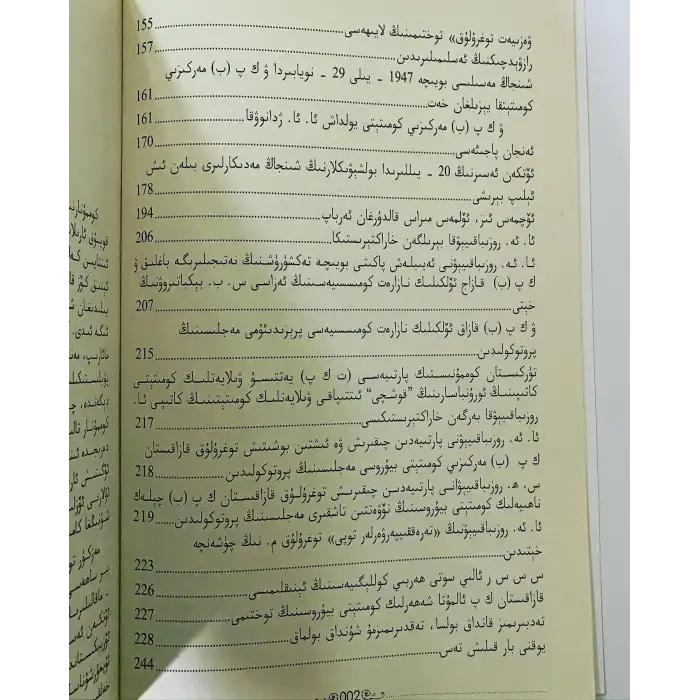 ۋەزىيەت توغرۇلۇق» توختىمىنىڭ لايىھەسى...155
رازۋېدچىكنىڭ ئەسلىمىلىرىدىن...157
شىنجاڭ مەسىلىسى بويىچە 1947 - يىلى 29 - نويابىردا ۋ ك پ (ب) مەركىزىي
كومىتېتقا يېزىلغان خەت...161
ۋ ك پ (ب) مەركىزىي كومىتېتى يولداش ئا. ئا. ژدانوۋقا...161
ئەنجان پاجىئەسى...170
ئۆتكەن ئەسىرنىڭ 20 - يىللىرىدا بولشېۋىكلارنىڭ شىنجاڭ مەدىكارلىرى بىلەن ئىش
ئېلىپ بېرىشى...178
ئۆچمەس ئىز، ئۆلمەس مىراس قالدۇرغان ئەرباپ...194
ئا. ئە. روزىباقىيېۋقا بېرىلگەن خاراكتېرىستىكا...206
ئا. ئە. روزىباقىيېۋنى ئەيىبلەش پاكىتى بويىچە تەكشۈرۈشنىڭ نەتىجىلىرىگە باغلىق ۋ
ك پ (ب) قازاق ئۆلكىلىك نازارەت كومىسسىيەسىنىڭ ئەزاسى س. ب. بېكباتىروۋنىڭ
خېتى...207
ۋ ك پ (ب) قازاق ئۆلكىلىك نازارەت كومىسسىيەسى پرېزىدىئۇمى مەجلىسىنىڭ
پروتوكولىدىن...215
تۈركىستان كوممۇنىستىك پارتىيەسى (ت ك پ) يەتتىسۇ ۋىلايەتلىك كومىتېتى
كاتىپىنىڭ ئورۇنباسارىنىڭ ”قوشچى“ ئىتتىپاقى ۋىلايەتلىك كومىتېتىنىڭ كاتىپى ئا.
روزىباقىيېۋقا بەرگەن خاراكتېرىستىكىسى...217
ئا. ئە. روزىباقىيېۋنى پارتىيەدىن چىقىرىش ۋە ئىشتىن بوشىتىش توغرۇلۇق قازاقىستان
ك پ (ب) مەركىزىي كومىتېتى بيۇروسى مەجلىسىنىڭ پروتوكولىدىن...218
س. ھ. روزىباقىيېۋانى پارتىيەدىن چىقىرىش توغرۇلۇق قازاقىستان ك پ (ب) چىلەك
ناھىيەلىك كومىتېتى بيۇروسىنىڭ نۆۋەتتىن تاشقىرى مەجلىسىنىڭ پروتوكولىدىن...219
ئا. ئە. روزىباقىيېۋنىڭ «تەرەققىيپەرۋەرلەر توپى» توغرۇلۇق م. نىڭ چۈشەنچە
خېتىدىن...223
س س س ر ئالىي سوتى ھەربىي كوللېگىيەسىنىڭ ئېنىقلىمىسى...226
قازاقىستان ك پ ئالمۇتا شەھەرلىك كومىتېتى بيۇروسىنىڭ توختىمى...227
تەدبىرىمىز قانداق بولسا، تەقدىرىمىزمۇ شۇنداق بولماق...228
يوقنى بار قىلىش تەس...244
002